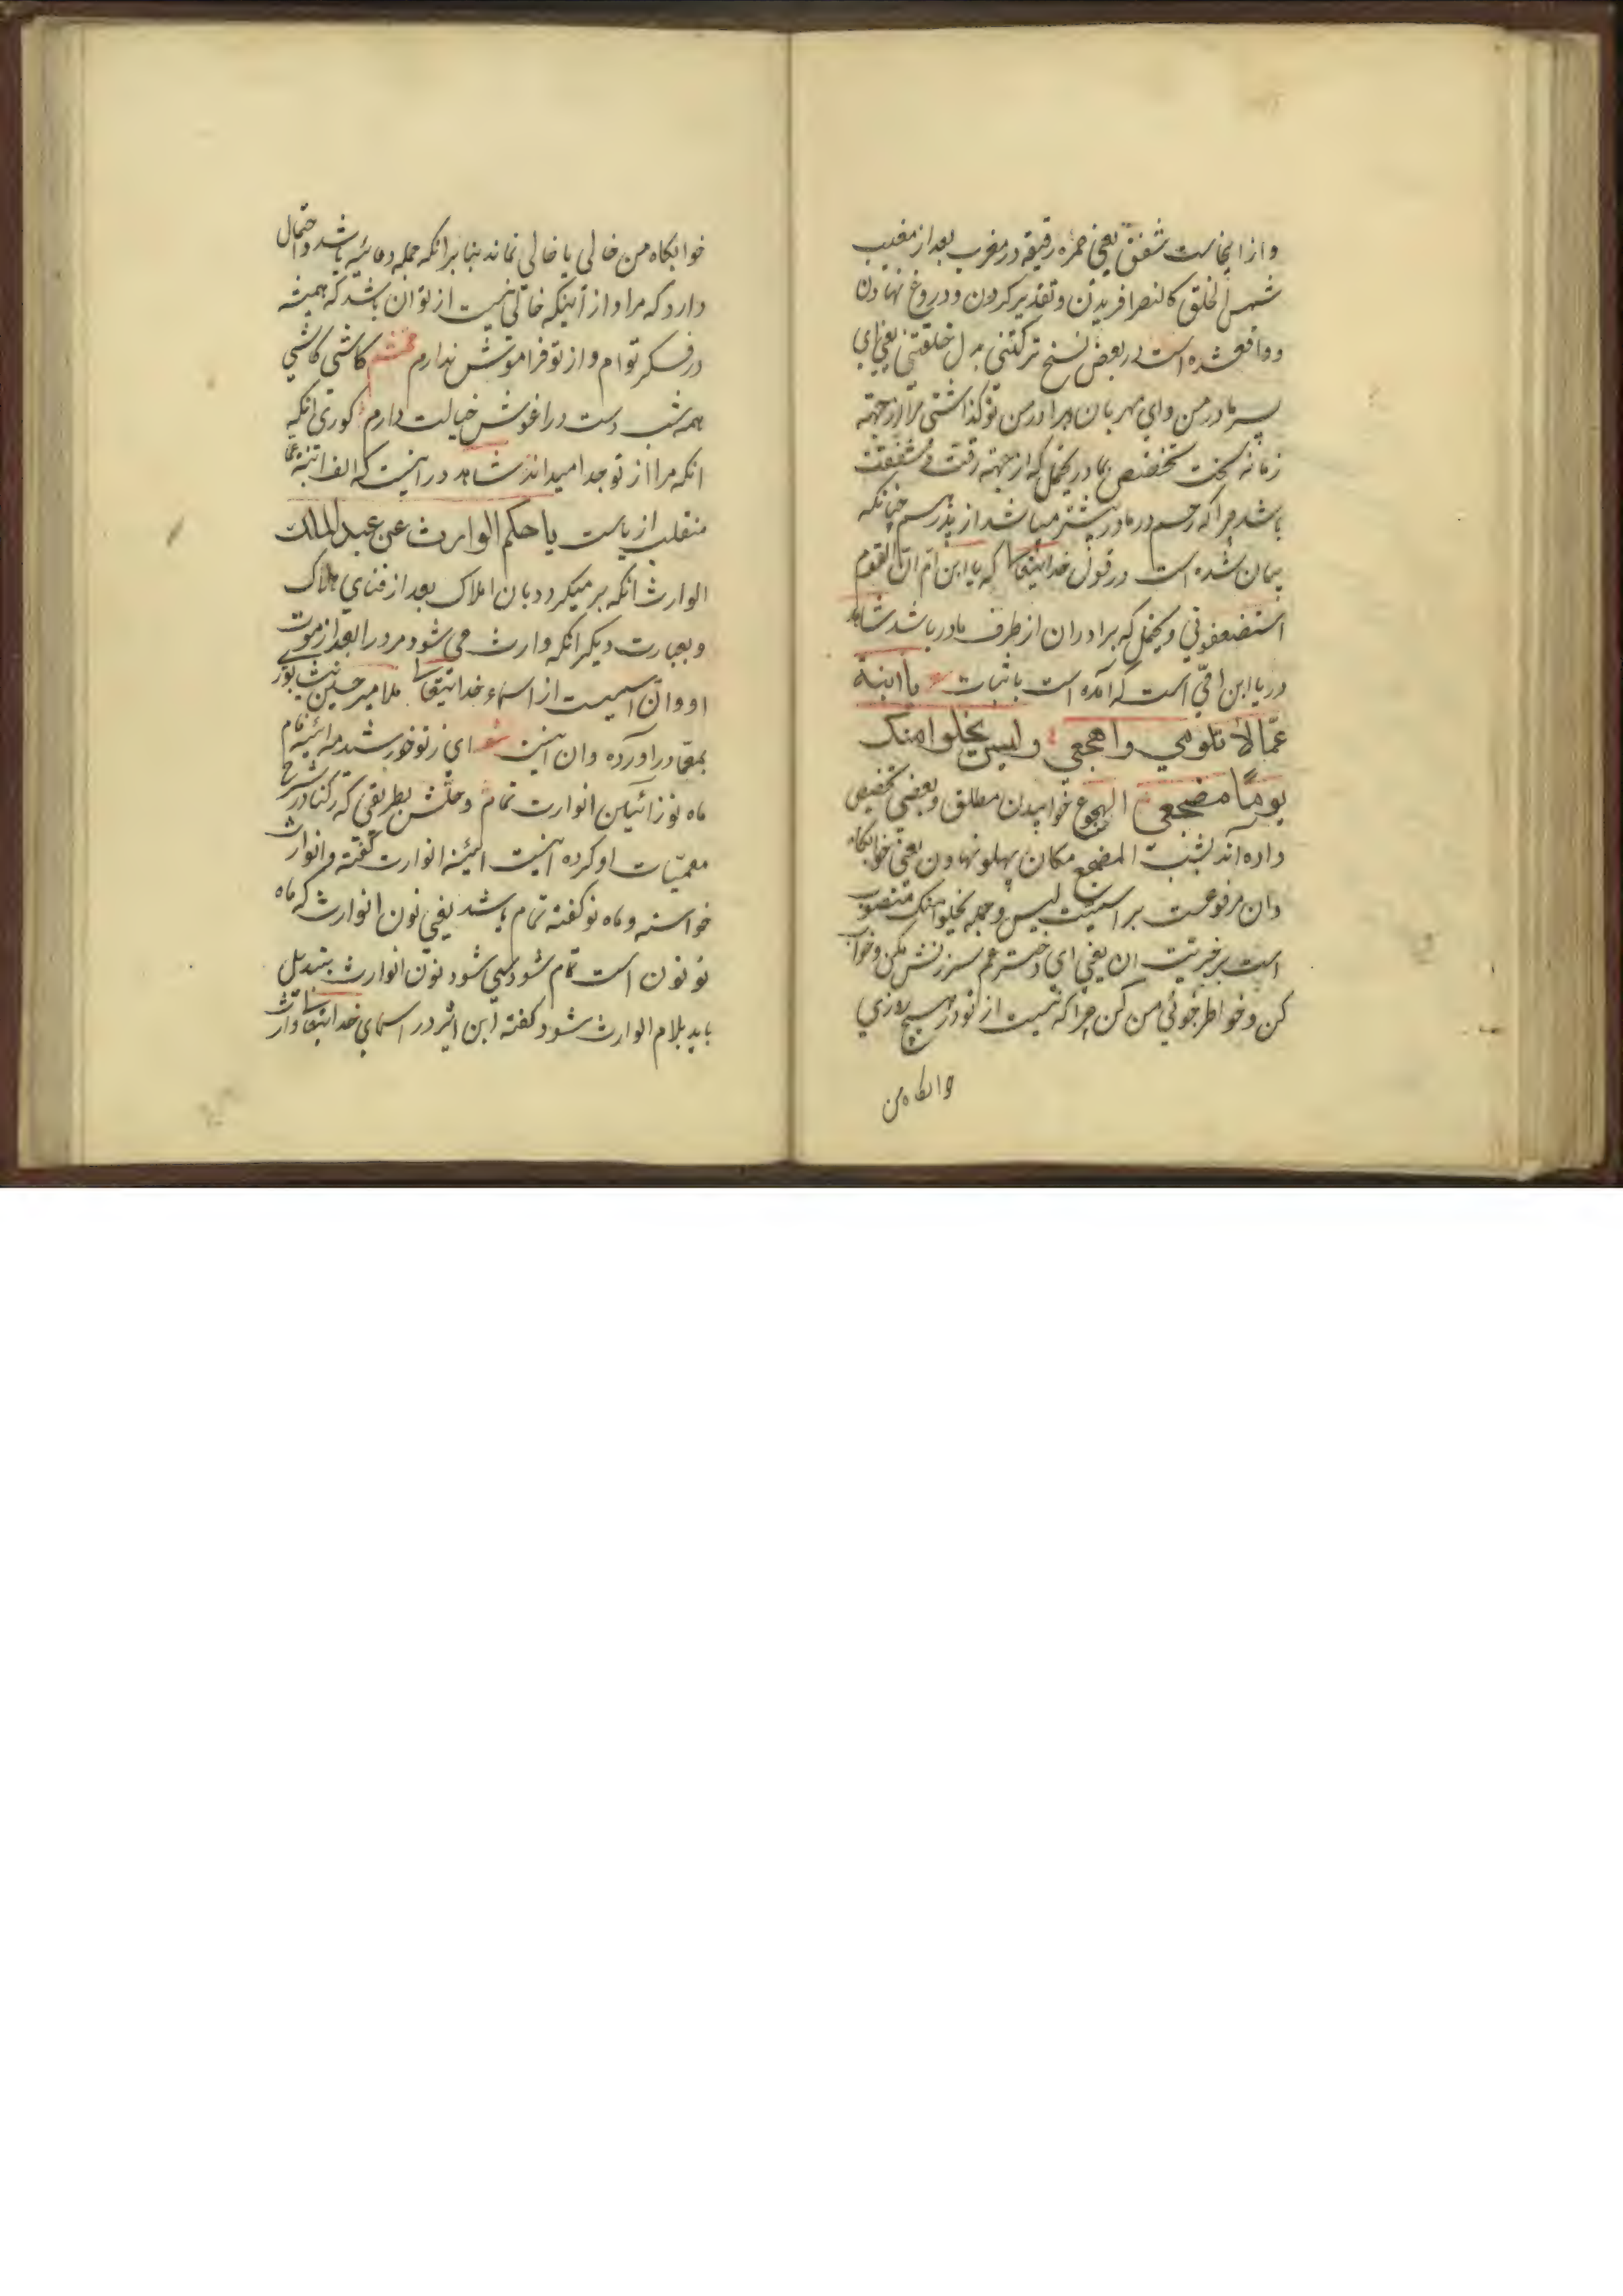 و از اینجاست شفق یعنی حمره رقیقه در مغرب بعد از مغیب
شمس الخلق کالنصر افریدن و تقدیر کردن و دروغ نهادن
و واقع شده است در بعض نسخ ترکتنی بدل خلقتنی یعنی ای
پسر مادر من و ای مهربان برادر من تو گذاشتی مرا از جهته
زمانه سخت تخصیص بمادر یحتمل که از جهته رقت و شفقت
باشد چرا که رحم در مادر بیشتر میباشد از پدر سم چنانکه
بیان شده است در قول خدایتعالی که یا ابن ام ان القوم
استضعفونی و یحتمل که برادران از طرف مادر باشد شاهد
در یا ابن امّی است که آمده است باثبات یا ابنة
عمّا لا تلومی واهجعی ولیس یخلوا منک
یومًا مضجعی الهجوع خوابیدن مطلق و بعضی تخصیص
داده اند بشب المضجع مکان پهلو نهادن یعنی خوابکاه
وان مرفوعست بر اسمیّت لیس و جمله یخلوا منک منصوب
است بر خبریت ان یعنی ای دختر عم سرزنش مکن و خواب
کن و خواطر جوئی من کن چرا که نیست از تو در هیچ روزی
خوابکاه من
خوابکاه من خالی یا خالی نماند بنا بر انکه جمله دعائیه باشد و احتمال
دارد که مراد از آینکه خالی نیست از تو ان باشد که همیشه
در فکر تو ام و از تو فراموش ندارم محتشم کاشی کاشی
همه شب دست در اغوش خیالت دارم کوری انکه
انکه مرا از تو جدا میداند شاهد در اینست که الف ابنة عما
منقلب از یاست یا حکم الوارث عن عبد الملک
الوارث انکه بر میکردد بان املاک بعد از فنای ملاک
و بعبارت دیکر انکه وارث می شود مرد را بعد از موت
او و ان اسمیست از اسماء خدایتعالی ملا میر حسین نیشابوری
بمعمّا در آورده وان اینست ای ز تو خورشید مه ائینه فام
ماه نو ز ائیلن انوارت تمام و حلش بطریقی که رکنا در شرح
معمیّات او کرده اینست ائینه انوارت گفته و انوارث
خواسته و ماه نو گفته تمام باشد یعنی نون انوارث که ماه
نو نون است تمام شود سی شود نون انوارث بتبدیل
یابد بلام الوارث شود گفته ابن اثیر در اسمای خدایتعالی وارث